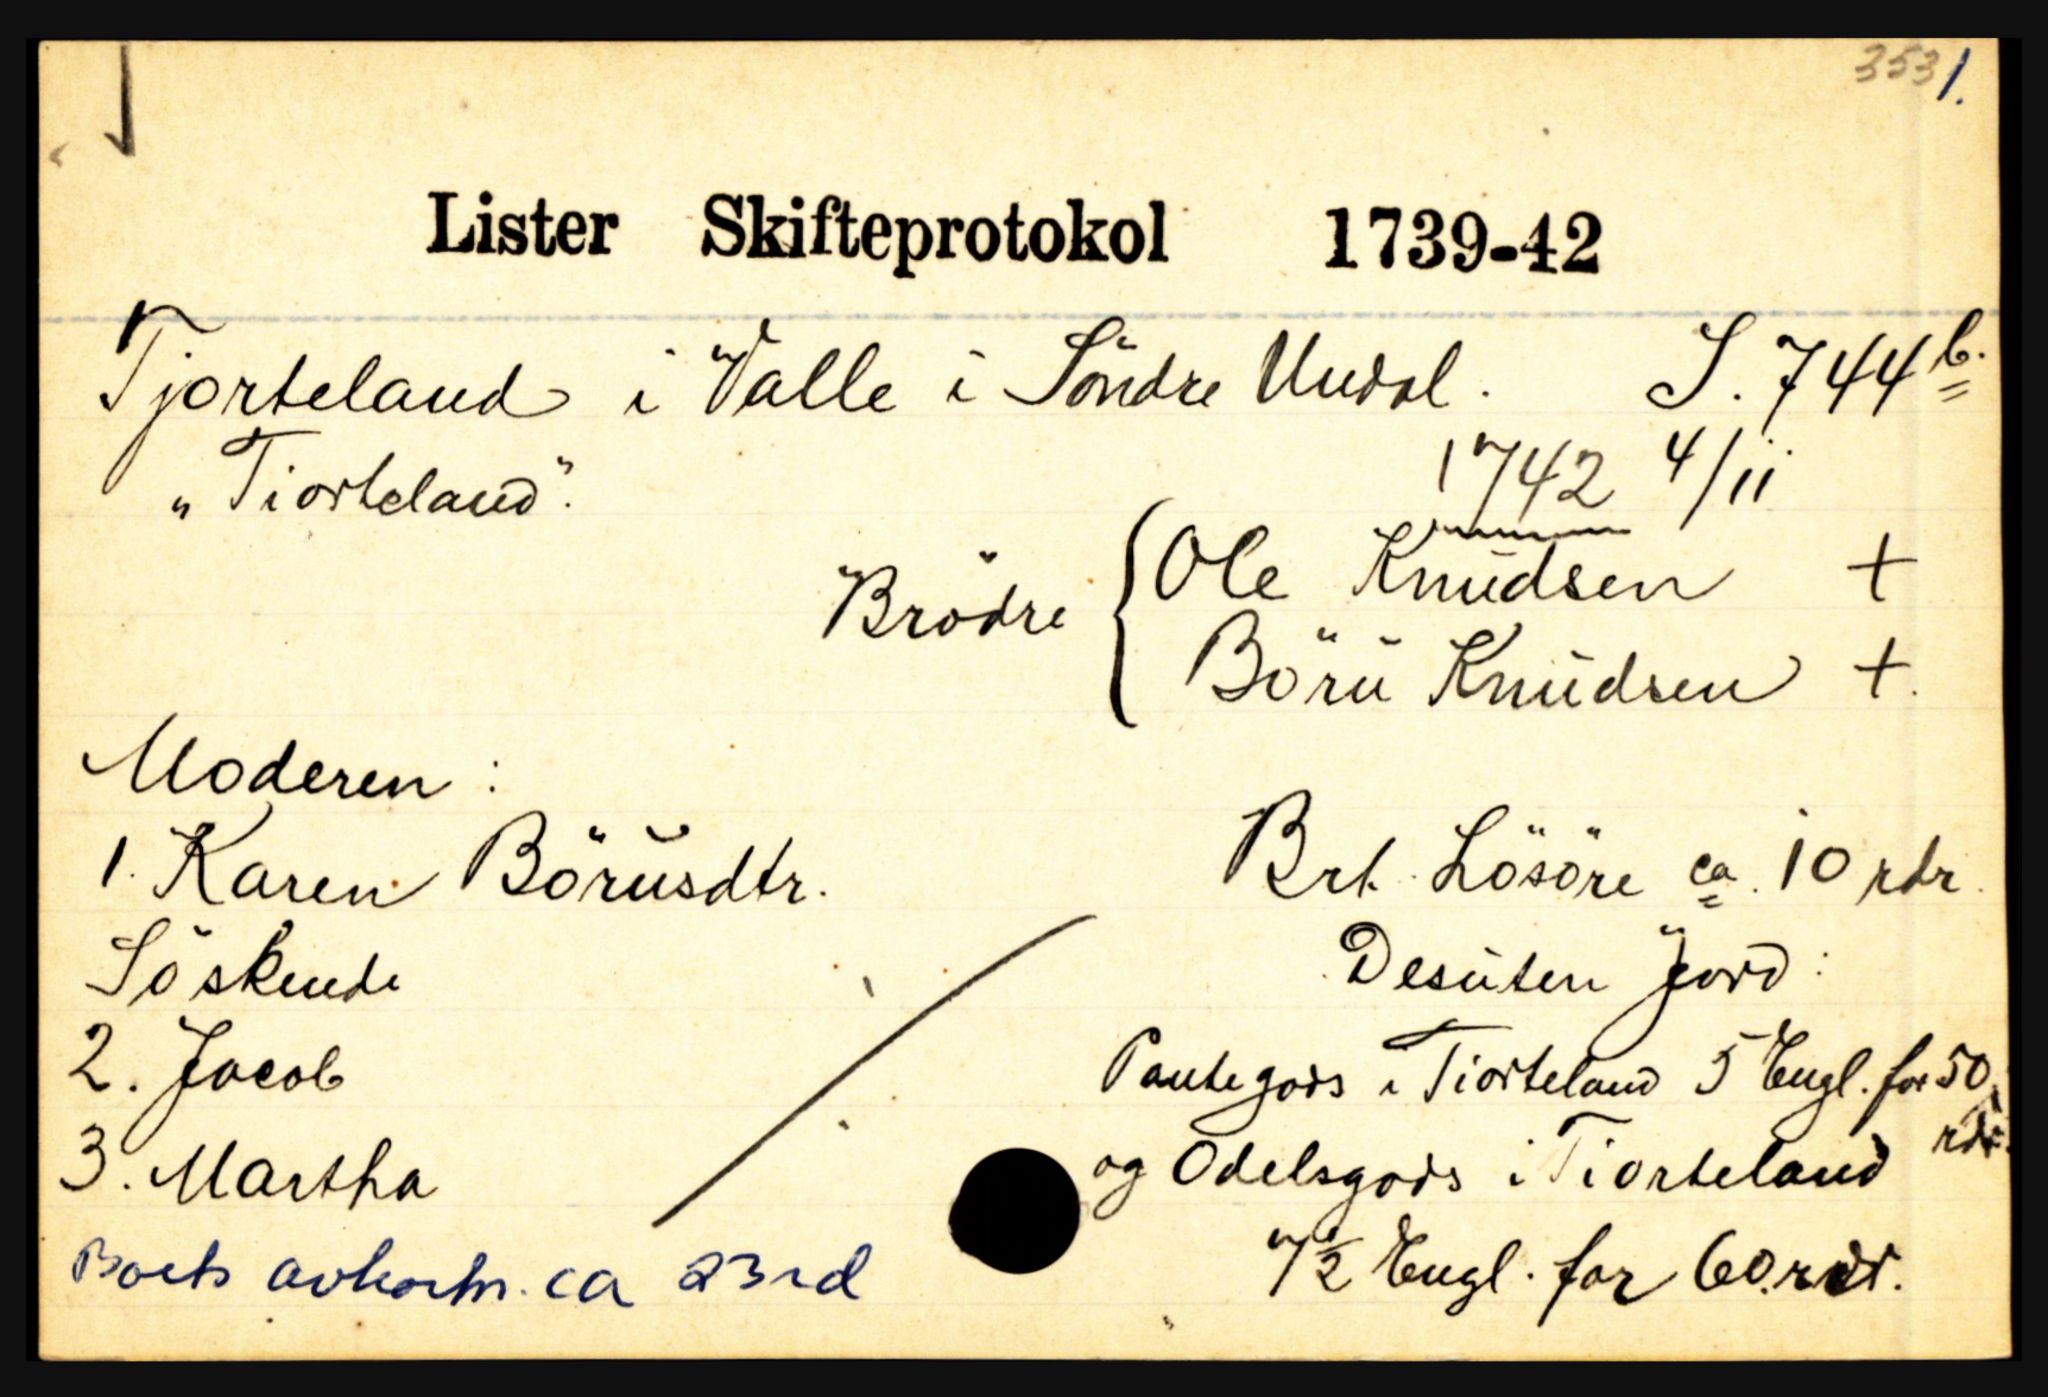 3531.
Lister Skifteprotokol 1739-42
Tjorteland i Valle i Söndre Undal. S. 744 b.
"Tiorteland". 1742 4/11
Brödre { Ole Knudsen +
Böru Knudsen +.
Moderen:
1. Karen Börusdtr. Brt. Lösöre ca. 10 rdr.
Söskende Desuten Jord:
2. Jacob Pantegods i Tiorteland 5 Engl. for 50 rdr.
3. Martha og Odelsgods i Tiorteland
Boets avkortn. ca 23 rd 7½ Engl. for 60 rdr.